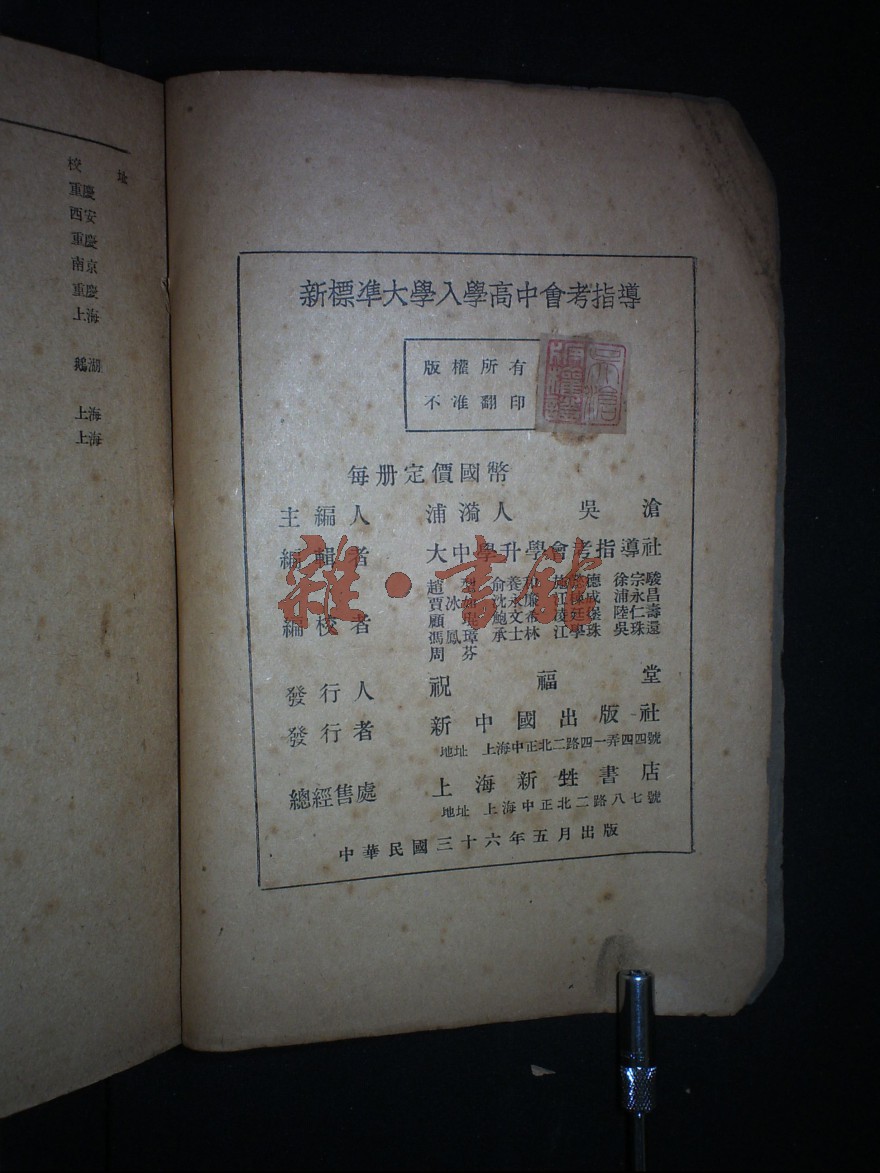 校 址
重慶
西安
重慶
南京
重慶
上海
鵝湖
上海
上海
新標準大學入學高中會考指導
版權所有
不准翻印
每册定價國幣
主編人 浦漪人 吳滄
編輯者 大中學升學會考指導社
編校者
趙型 俞養和 施 德 徐宗駿
賈冰如 沈永 江 成 浦永昌
顧 鮑文希 凌廷堡 陸仁壽
馮鳳璋 承士林 江學珠 吳珠還
周芬
發行人 祝福堂
發行者 新中國出版社
地址 上海中正北二路四一弄四四號
總經售處 上海新甡書店
地址 上海中正北二路八七號
中華民國三十六年五月出版
雜·書館